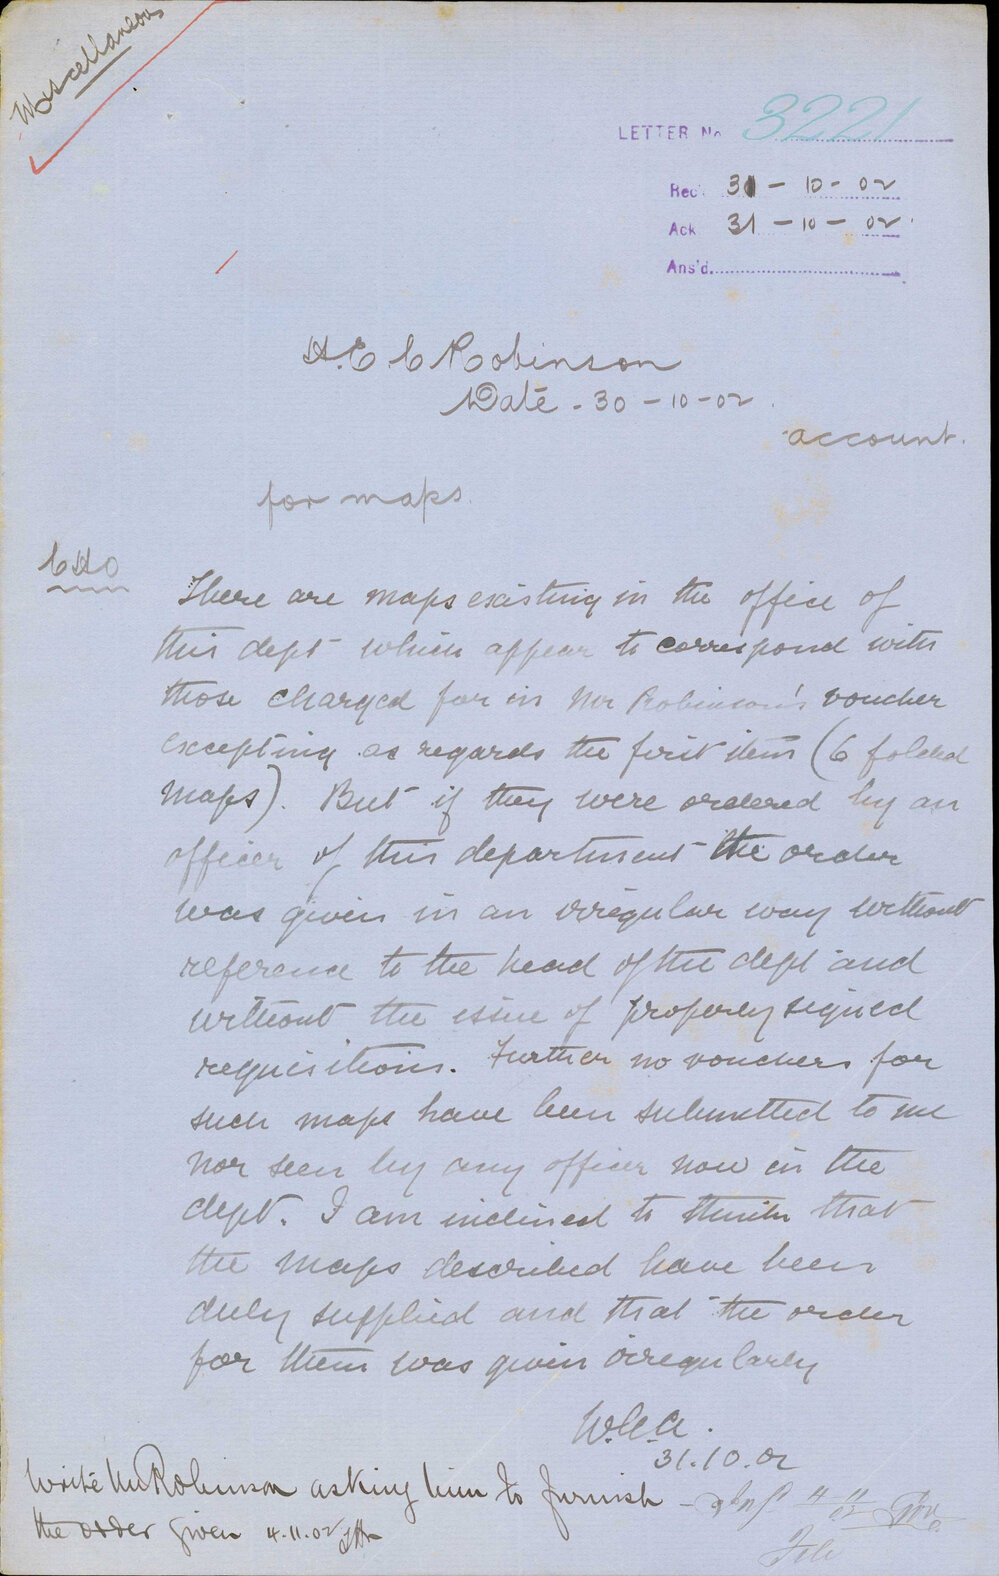 Miscellaneous
LETTER No 3221
Rec'd 31 - 10 - 02
Ack 31 - 10 - 02
Ans'd.
H. E. C Robinson
Date - 30 - 10 - 02
account.
for maps.
There are maps existing in the office of
this dept which appear to correspond with
those charged for in Mr Robinson's voucher
excepting as regards the first item (6 folded
maps). But if they were ordered by an
officer of this department the order
was given in an irregular way without
reference to the head of the dept and
without the issue of properly signed
requisitions. Further no vouchers for
such maps have been submitted to me
nor seen by any officer now in the
dept. I am inclined to think that
the maps described have been
duly supplied and that the order
for them was given irregularly
31.10.02
Write Mr Robinson asking him to furnish
the order given 4.11.02